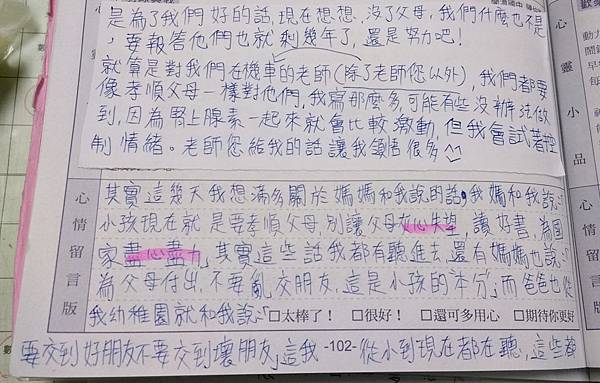 是為了我們好的話,現在想想,沒了父母,我們什麼也不是
,要報答他們也就剩幾年了,還是努力吧!
就算是對我們在機車的老師(除了老師您以外),我們都要
像孝順父母一樣對他們,我寫那麼多,可能有些沒辦法做
到,因為腎上腺素一起來就會比較激動,但我會試著控
制情緒。老師您給我的話讓我領悟很多
其實這幾天我想滿多關於媽媽和我說的話,我媽和我說:「
小孩現在就是要孝順父母,別讓父母灰心失望,讀好書,為國
家盡心盡力」,其實這些話我都有聽進去,還有媽媽也說:「
為父母付出,不要亂交朋友,這是小孩的本分」而爸爸也從
我幼稚園就和我說:「
□太棒了! □很好! □還可多用心 □期待你更好
要交到好朋友不要交到壞朋友」這我
-102-
從小到現在都在聽,這些都
心情留言版
心靈小品